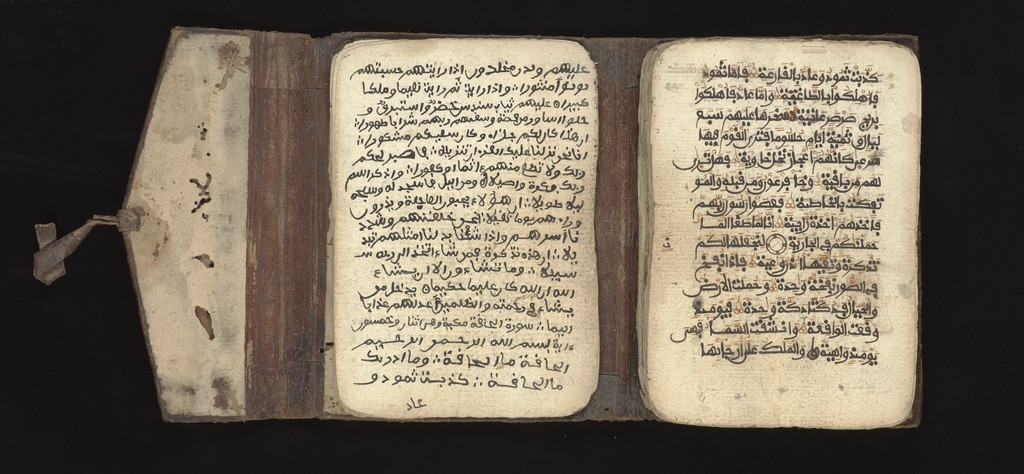 كذبت ثمود وعاد بالقارعة فاما ثمود
فاهلكوا بالطاغية واما عاد فاهلكوا
بريح صرصر عاتية سخرها عليهم سبع
ليال وثمنية ايام حسوما فترى القوم فيها
صرعى كانهم اعجاز نخل خاوية فهل ترى
لهم من باقية وجا فرعون ومن قبله والمو
تفكت بالخاطية فعصوا رسول ربهم
فاخذهم اخذة رابية انا لما طغا الما
حملنكم في الجارية لنجعلها لكم
تذكرة وتعيها اذن وعية فاذا نفخ
في الصور نفخة وحدة وحملت الارض
والجبال فدكتا دكة وحدة فيوميذ
وقعت الواقعة وانشقت السما فهي
يوميذ واهية والملك على ارجايها
عليهم ولدن مخلدون اذا رايتهم حسبتهم
لولوا منثورا واذا رايت ثم رايت نعيما وملكا
كبيرا عليهم ثياب سندس خضر واستبرق و
حلوا اساور من فضة وسقيهم ربهم شرابا طهورا
ان هذا كان لكم جزاء وكان سعيكم مشكورا
انا نحن نزلنا عليك القرءان تنزيلا فاصبر لحكم
ربك ولا تطع منهم ءاثما او كفورا واذكر اسم
ربك بكرة واصيلا ومن اليل فاسجد له وسبحه
ليلا طويلا ان هؤلاء يحبون العاجلة ويذرون
وراءهم يوما ثقيلا نحن خلقنهم وشدد
نا اسرهم واذا شئنا بدلنا امثلهم تبد
يلا ان هذه تذكرة فمن شاء اتخذ الى ربه
سبيلا وما تشاءون الا ان يشاء
الله ان الله كان عليما حكيما يدخل من
يشاء في رحمته والظلمين اعد لهم عذابا
اليما سورة الحاقة مكية وهي اثنان وخمسون
ءاية بسم الله الرحمن الرحيم
الحاقة ما الحاقة وما ادريك
ما الحاقة كذبت ثمود و
عاد